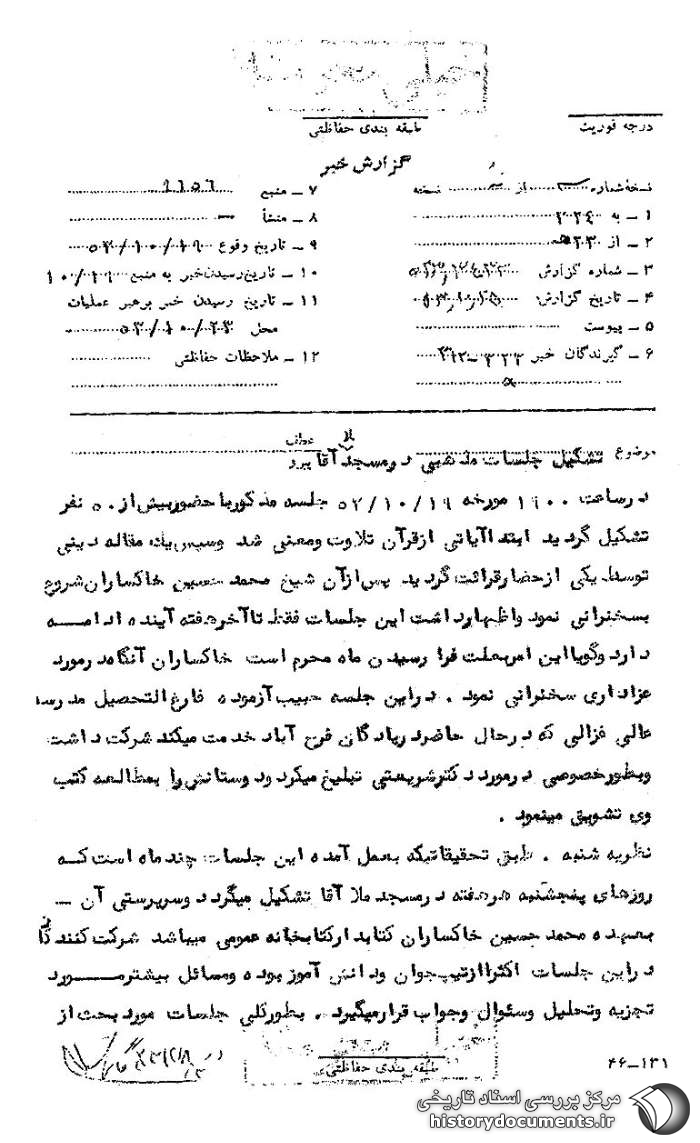 درجه فوریت
طبقه بندی حفاظتی
گزارش خبر
نسخه شماره از نسخه
۱ ـ به ۲۲٤۰
۲ ـ از ۲۳۰ه
۳ ـ شماره گزارش
۴ ـ تاریخ گزارش
۵ ـ پیوست
۶ ـ گیرندگان خبر ۳۲۲ـ۳۱۲
۷ ـ منبع
۸ ـ منشأ —
۹ ـ تاریخ وقوع ۵۲/۱۰/۱۹
۱۰ ـ تاریخ رسیدن خبر به منبع ۱۰/۱۹
۱۱ ـ تاریخ رسیدن خبر برهبر عملیات
محل ۵۲/۱۰/۲۳
۱۲ ـ ملاحظات حفاظتی
موضوع تشکیل جلسات مذهبی درمسجد ملا آقا
عطف
پیرو
درساعت ۱۹۰۰ مورخه ۵۲/۱۰/۱۹ جلسه مذکوربا حضوربیش از۵۰ نفر
تشکیل گردید ابتدا آیاتی ازقرآن تلاوت ومعنی شد وسپس یك مقاله دینی
توسط یکی ازحضارقرائت گردید پس ازآن شیخ محمد حسین خاکساران شروع
بسخنرانی نمود واظهارداشت این جلسات فقط تا آخرهفته آینده ادامـــه
دارد وگویا این امربعلت فرا رسیدن ماه محرم است خاکساران آنگاه درمورد
عزاداری سخنرانی نمود . دراین جلسه حبیب آزموده فارغ التحصیل مدرسه
عالی قزالی که درحال حاضردرپادگان فرح آباد خدمت میکند شرکت داشت
وبطورخصوصی درمورد دکترشریعتی تبلیغ میکرد ود وستانش را بمطالعه کتب
وی تشویق مینمود .
نظریه شنبه . طبق تحقیقاتیکه بعمل آمده این جلسات چند ماه است کـه
روزهای پنجشنبه هرهفته درمسجد ملا آقا تشکیل میگردد وسرپرستی آن ـ
بعهده محمد حسین خاکساران کتابدارکتابخانه عمومی میباشد شرکت کنندگان
دراین جلسات اکثرا ازتیپ جوان ودانش آموز بوده ومسائل بیشترمـــورد
تجزیه وتحلیل وسئوال وجواب قرارمیگیرد . بطورکلی جلسات مورد بحث از
طبقه بندی حفاظتی
۴۶ـ۱۳۱
مرکز بررسی اسناد تاریخی
historydocuments.ir